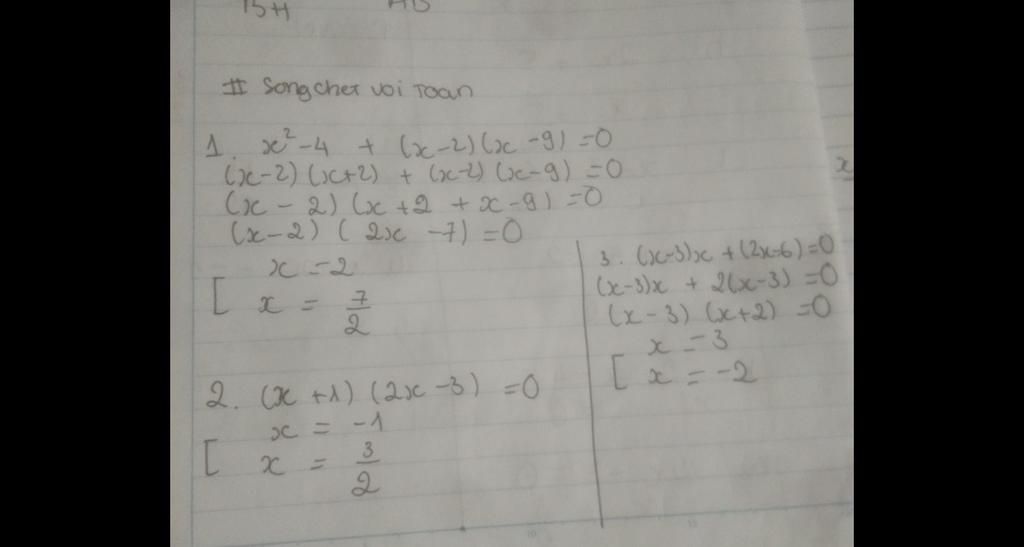 BH AB
# Song chet voi Toan
1. x² - 4 + (x - 2)(x - 9) = 0
(x - 2)(x + 2) + (x - 2)(x - 9) = 0
(x - 2)(x + 2 + x - 9) = 0
(x - 2)(2x - 7) = 0
x = 2
[ x = 7/2
2. (x + 1)(2x - 3) = 0
x = -1
[ x = 3/2
3. (x - 3)x + (2x - 6) = 0
(x - 3)x + 2(x - 3) = 0
(x - 3)(x + 2) = 0
x = 3
[ x = -2
x